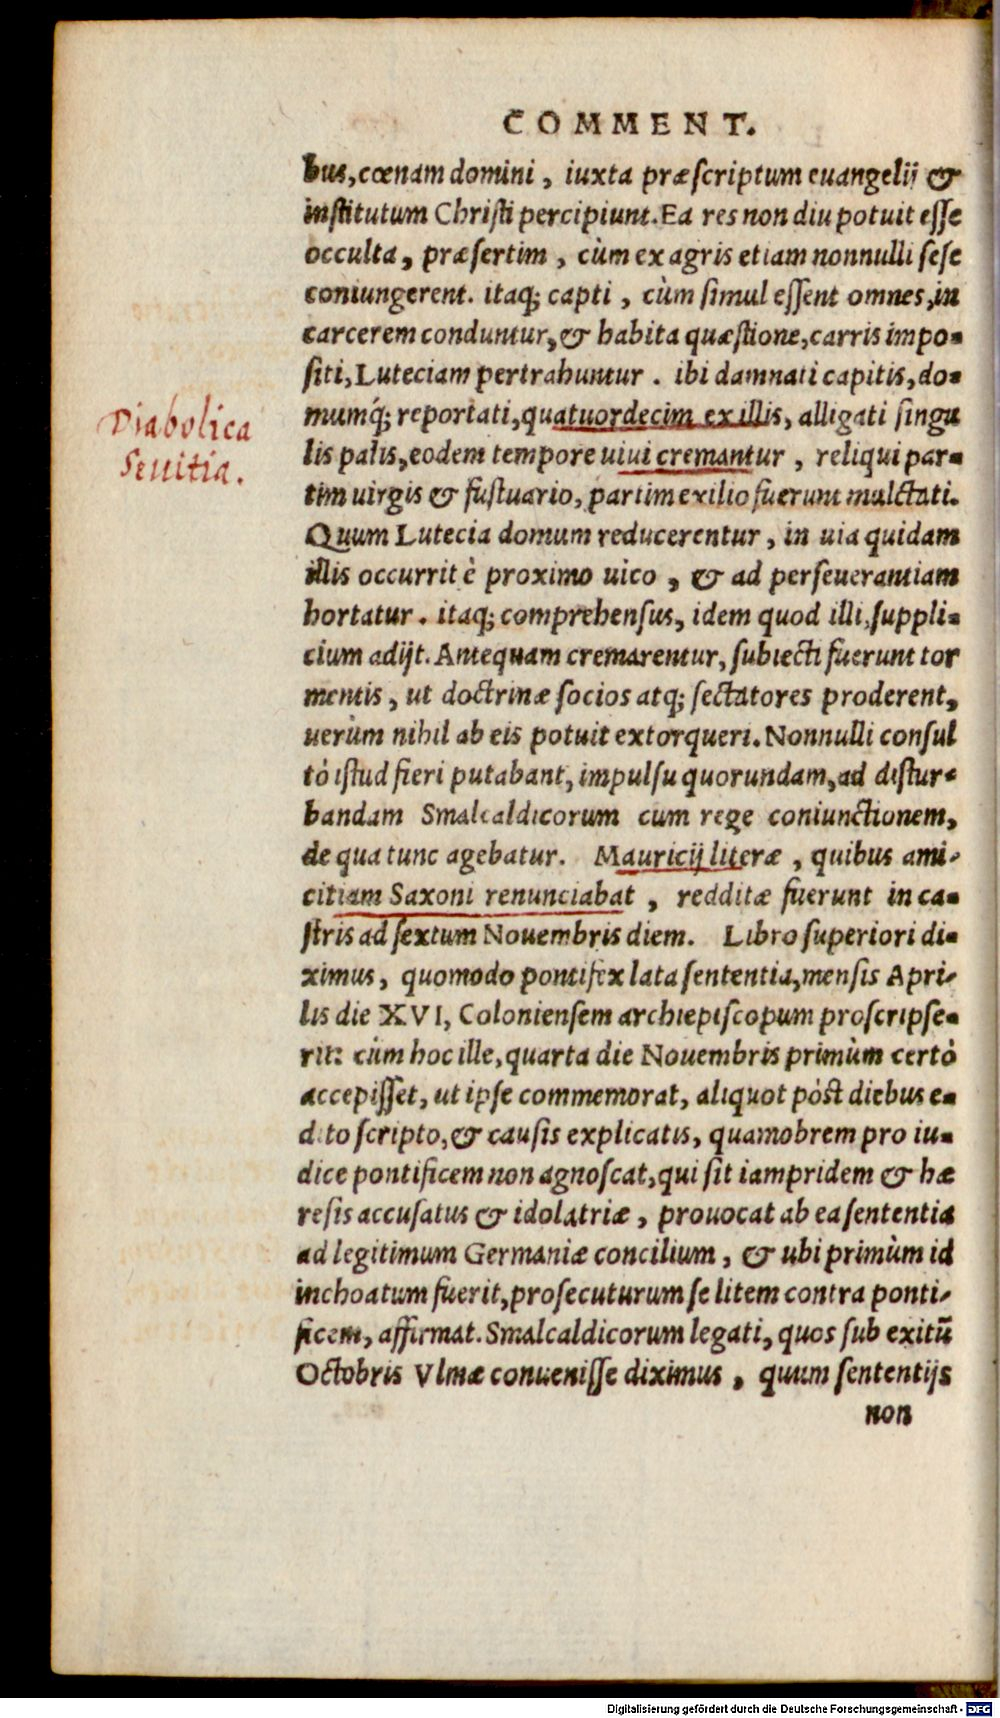 COMMENT.
bus, cœnam domini, iuxta præscriptum euangelij &
institutum Christi percipiunt. Ea res non diu potuit esse
occulta, præsertim, cùm ex agris etiam nonnulli sese
coniungerent. itaq; capti, cùm simul essent omnes, in
carcerem conduntur, & habita quæstione, carris impo-
siti, Luteciam pertrahuntur. ibi damnati capitis, do-
mumq́; reportati, quatuordecim ex illis, alligati singu
lis palis, eodem tempore uiui cremantur, reliqui par-
tim uirgis & fustuario, partim exilio fuerunt mulctati.
Quum Lutecia domum reducerentur, in uia quidam
illis occurrit è proximo uico, & ad perseuerantiam
hortatur. itaq; comprehensus, idem quod illi, suppli-
cium adijt. Antequam cremarentur, subiecti fuerunt tor
mentis, ut doctrinæ socios atq; sectatores proderent,
uerùm nihil ab eis potuit extorqueri. Nonnulli consul
tò istud fieri putabant, impulsu quorundam, ad distur-
bandam Smalcaldicorum cum rege coniunctionem,
de qua tunc agebatur. Mauricij literæ, quibus ami-
citiam Saxoni renunciabat, redditæ fuerunt in ca-
stris ad sextum Nouembris diem. Libro superiori di-
ximus, quomodo pontifex lata sententia, mensis Apri-
lis die XVI, Coloniensem archiepiscopum proscripse-
rit: cùm hoc ille, quarta die Nouembris primùm certò
accepisset, ut ipse commemorat, aliquot pòst diebus e-
dito scripto, & causis explicatis, quamobrem pro iu-
dice pontificem non agnoscat, qui sit iampridem & hæ
resis accusatus & idolatriæ, prouocat ab ea sententia
ad legitimum Germaniæ concilium, & ubi primùm id
inchoatum fuerit, prosecuturum se litem contra ponti-
ficem, affirmat. Smalcaldicorum legati, quos sub exitũ
Octobris Vlmæ conuenisse diximus, quum sententijs
non
Diabolica
Seuitia.
Digitalisierung gefördert durch die Deutsche Forschungsgemeinschaft - DFG